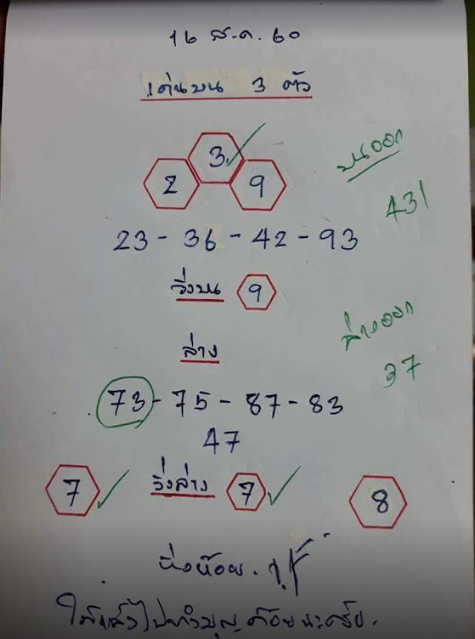 16 ส.ค. 60
เด่นบน 3 ตัว
3
2 9
บนออก
431
23 - 36 - 42 - 93
วิ่งบน 9
ล่างออก
37
ล่าง
73 - 75 - 87 - 83
47
7 วิ่งล่าง 7 8
ได้แล้วไปทำบุญด้วยนะครับ.